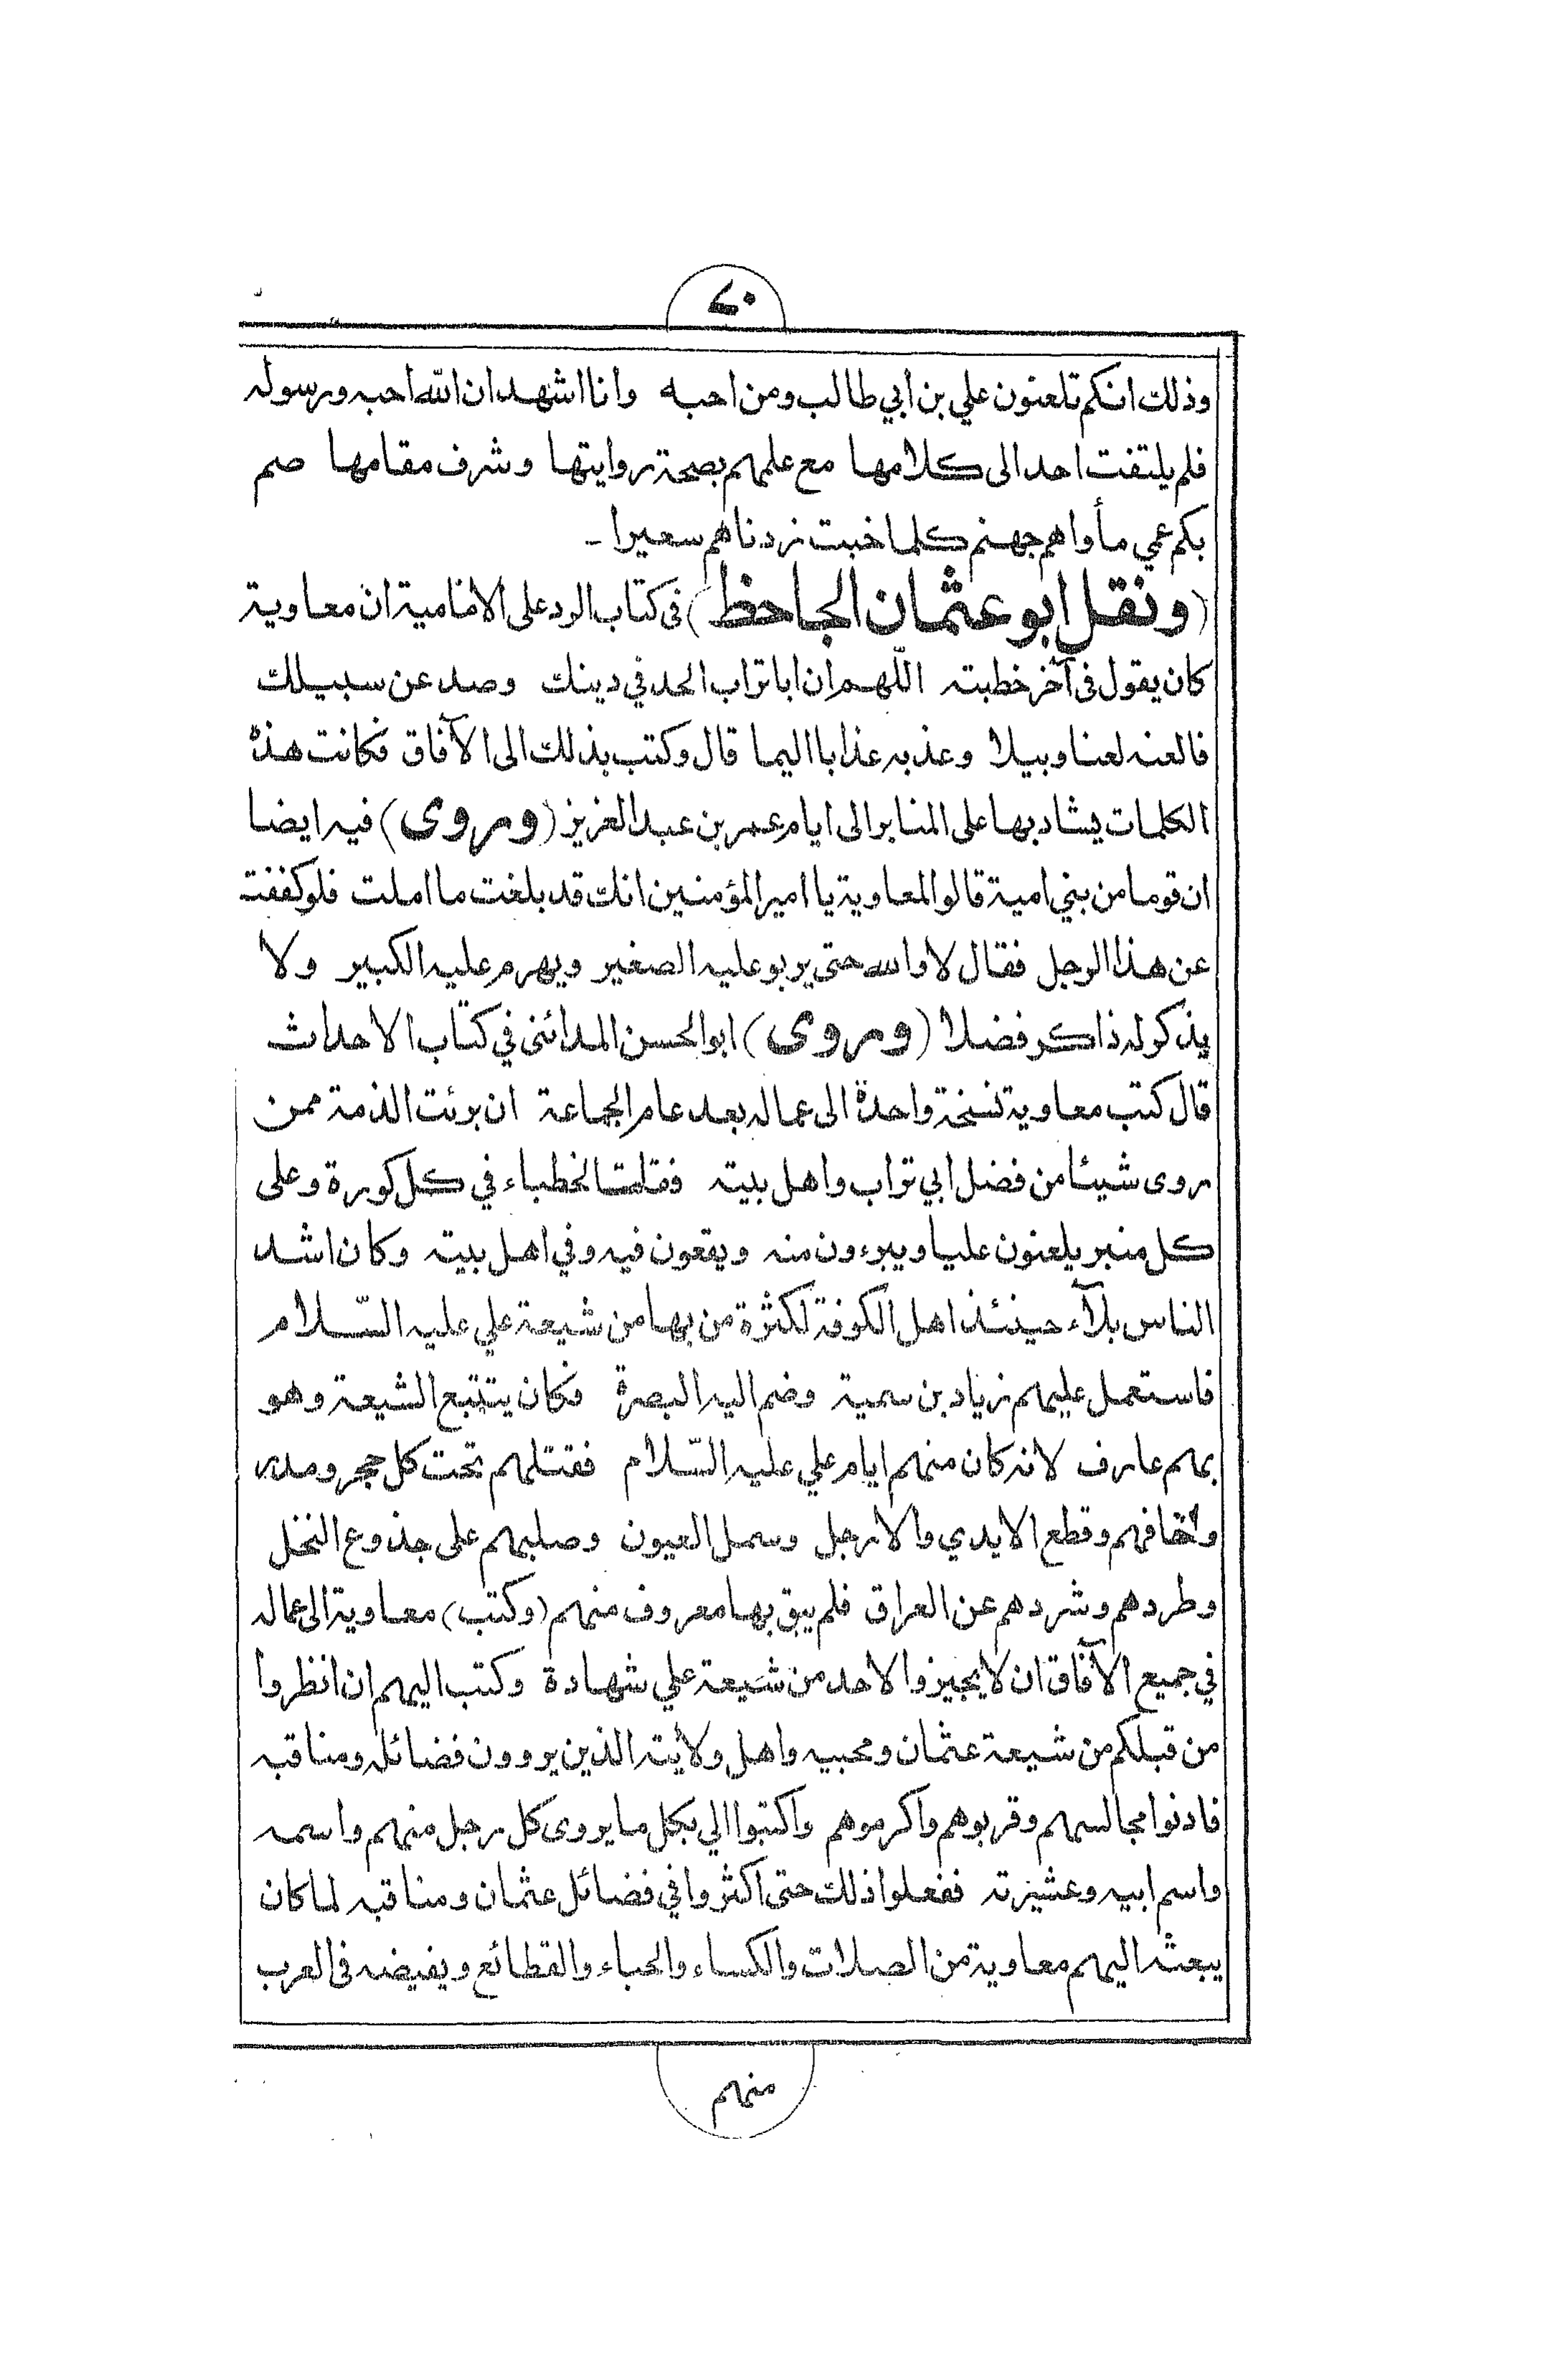 ٧٠
وذلك انكم تلعنون علي بن أبي طالب ومن احبه وانا اشهد ان الله احبه ورسوله
فلم يلتفت احد الى كلامها مع علمهم بصحة روايتها وشرف مقامها صم
بكم عمي مأواهم جهنم كلما خبت زدناهم سعيرا -
(ونقل ابو عثمان الجاحظ) في كتاب الرد على الامامية ان معاوية
كان يقول في آخر خطبته اللّهم ان ابا تراب الحد في دينك وصد عن سبيلك
فالعنه لعنا وبيلا وعذبه عذابا اليما قال وكتب بذلك الى الآفاق فكانت هذه
الكلمات يشاد بها على المنابر الى ايام عمر بن عبد العزيز (وروى) فيه ايضا
ان قوما من بني امية قالوا لمعاوية يا امير المؤمنين انك قد بلغت ما املت فلو كففت
عن هذا الرجل فقال لا والله حتى يربو عليه الصغير ويهرم عليه الكبير ولا
يذكر له ذاكر فضلا (وروى) ابو الحسن المدائني في كتاب الاحداث
قال كتب معاوية نسخة واحدة الى عماله بعد عام الجماعة ان برئت الذمة ممن
روى شيئا من فضل ابي تراب واهل بيته فقامت الخطباء في كل كورة وعلى
كل منبر يلعنون عليا ويبرءون منه ويقعون فيه وفي اهل بيته وكان اشد
الناس بلآء حينئذ اهل الكوفة لكثرة من بها من شيعة علي عليه السّلام
فاستعمل عليهم زياد بن سمية وضم اليه البصرة فكان يتتبع الشيعة وهو
بهم عارف لانه كان منهم ايام علي عليه السّلام فقتلهم تحت كل حجر ومدر
واخافهم وقطع الايدي والارجل وسمل العيون وصلبهم على جذوع النخل
وطردهم وشردهم عن العراق فلم يبق بها معروف منهم (وكتب) معاوية الى عماله
في جميع الآفاق ان لا يجيزوا لاحد من شيعة علي شهادة وكتب اليهم ان انظروا
من قبلكم من شيعة عثمان ومحبيه واهل ولايته الذين يروون فضائله ومناقبه
فادنوا مجالسهم وقربوهم واكرموهم واكتبوا الي بكل ما يروى كل رجل منهم واسمه
واسم ابيه وعشيرته ففعلوا ذلك حتى اكثروا في فضائل عثمان ومناقبه لما كان
يبعثه اليهم معاوية من الصلات والكساء والحباء والقطائع ويفيضه في العرب
منهم